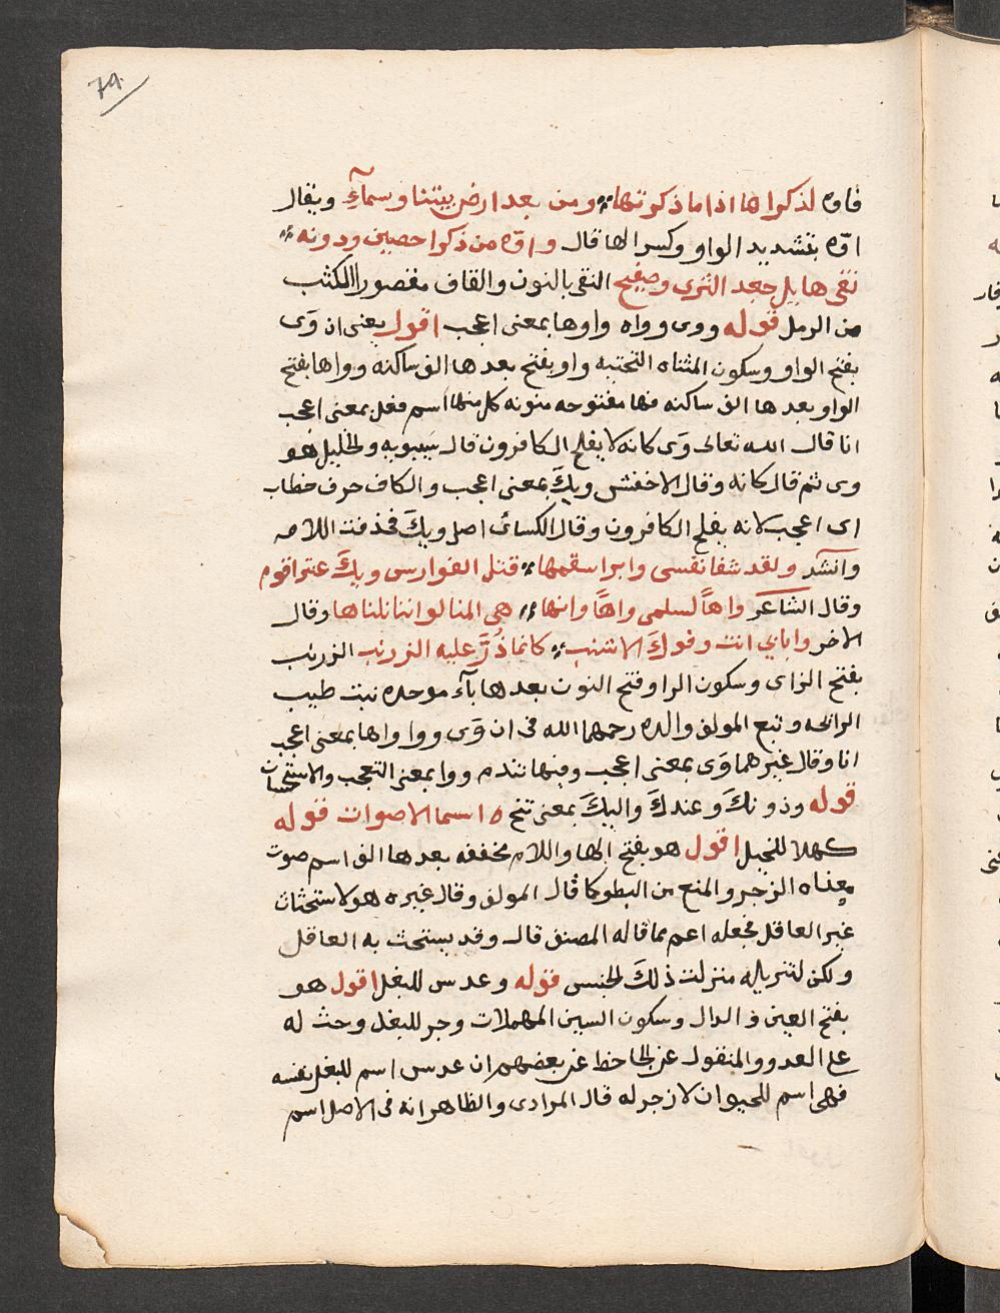 79
فاوه لذكراها اذا ما ذكرتها ؞ ومن بعد ارض بيننا وسمآءِ ويقال
اوّه بتشديد الواو وكسر الها قال واوّه من ذكرا حصين ودونه ؞
نقى هايل جعد الثرى وصفيح النقى بالنون والقاف مقصورا الكثب
من الرمل قوله ووى وواه واوها بمعنى اعجب اقول يعنى ان وَى
بفتح الواو وسكون المثناه التحتيه واو بفتح بعدها الف ساكنه وواها بفتح
الواو بعدها الف ساكنه فها مفتوحه منونه كل منها اسم فعل بمعنى اعجب
انا قال الله تعالى وَى كانه لا يفلح الكافرون قال سيبويه والخليل هو
وى ثم قال كانه وقال الاخفش ويكَ بمعنى اعجب والكاف حرف خطاب
اى اعجب لانه يفلح الكافرون وقال الكسائى اصل ويكَ فحذفت اللام
وانشد ولقد شفا نفسى وابرا سقمها ؞ قتل الفوارس ويكَ عنتر اقدم
وقال الشاعر واهاً لسلمى واهًا واها ؞ هى المنا لو اننا نلناها وقال
الاخر وابابي انت وفوكَ الاشنب ؞ كانما ذُرَّ عليه الزرنب الزرنب
بفتح الزاى وسكون الرا وفتح النون بعدها بآء موحده نبت طيب
الرائحه وتبع المولف والده رحمهما الله فى ان وَى ووا واها بمعنى اعجب
انا وقال غيرهما وَى بمعنى اعجب ومنها تندم ووا بمعنى التعجب والاستحسان
قوله ودونكَ وعندكَ واليكَ بمعنى تنح ه اسما الاصوات قوله
كهلا للخيل اقول هو بفتح الها واللام مخففه بعدها الف اسم صوت
معناه الزجر والمنع من البطو كما قال المولف وقال غيره هو لاستحثاث
غير العاقل فجعله اعم مما قاله المصنف قال وقد يستحث به العاقل
ولكن لتنزيله منزلت ذلكَ الجنس قوله وعدس للبغل اقول هو
بفتح العين والدال وسكون السين المهملات وجر للبغل وحث له
على العدو والمنقول عن الجاحظ عن بعضهم ان عدس اسم للبغل نفسه
فهى اسم للحيوان لا زجر له قال المرادى والظاهر انه فى الاصل اسم